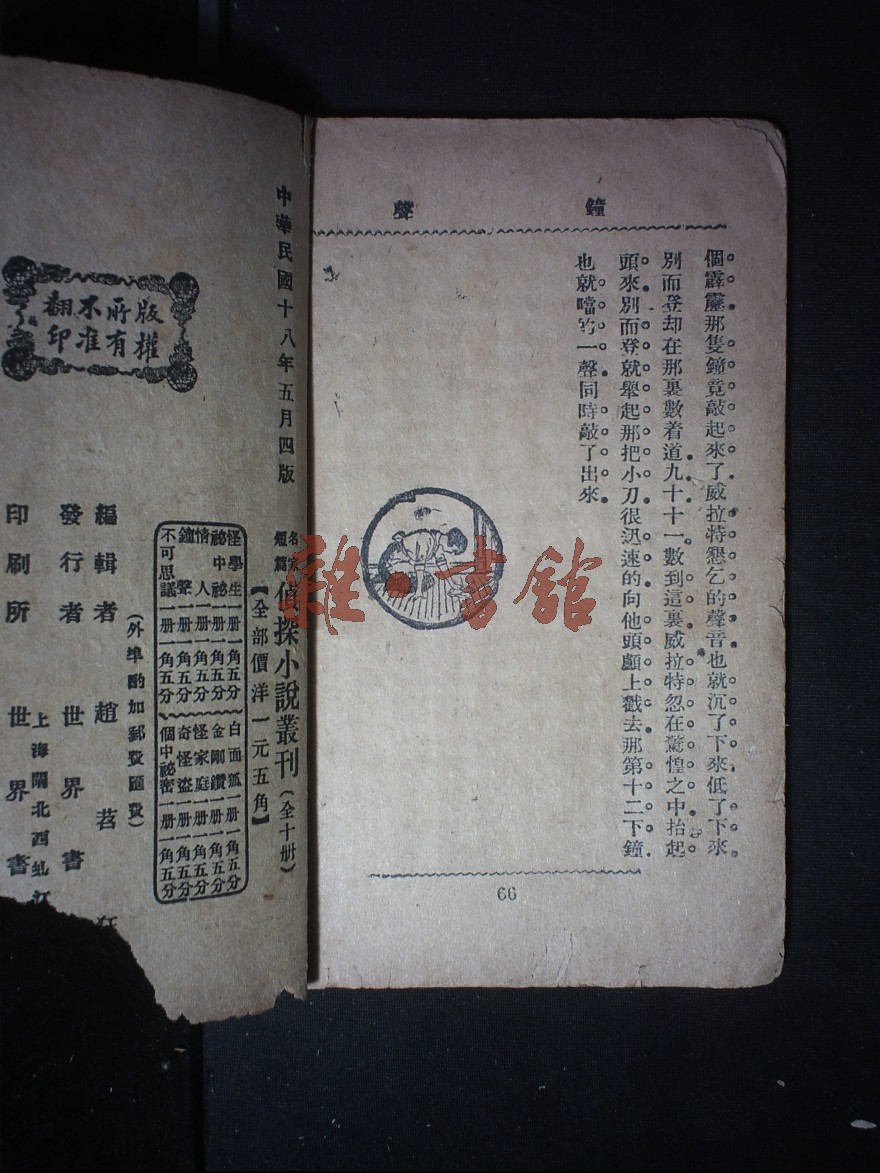 鐘聲
個霹靂那隻鐘竟敲起來了威拉特懇乞的聲音也就沉了下來低了下來
別而登却在那裏數着道九十十一數到這裏威拉特忽在驚惶之中抬起
頭來別而登就舉起那把小刀很迅速的向他頭顱上戳去那第十二下鐘
也就噹的一聲同時敲了出來
66
中華民國十八年五月四版
名家短篇偵探小說叢刊(全十册)
【全部價洋一元五角】
怪學生一册一角五分
祕中祕一册一角五分
情人一册一角五分
鐘聲一册一角五分
不可思議一册一角五分
白面狐一册一角五分
金剛鑽一册一角五分
怪家庭一册一角五分
奇怪盜一册一角五分
個中祕密一册一角五分
(外埠酌加郵費匯費)
版權所有不准翻印
編輯者 趙苕狂
發行者 世界書
上海閘北西虬江
印刷所 世界書
雜·書舘